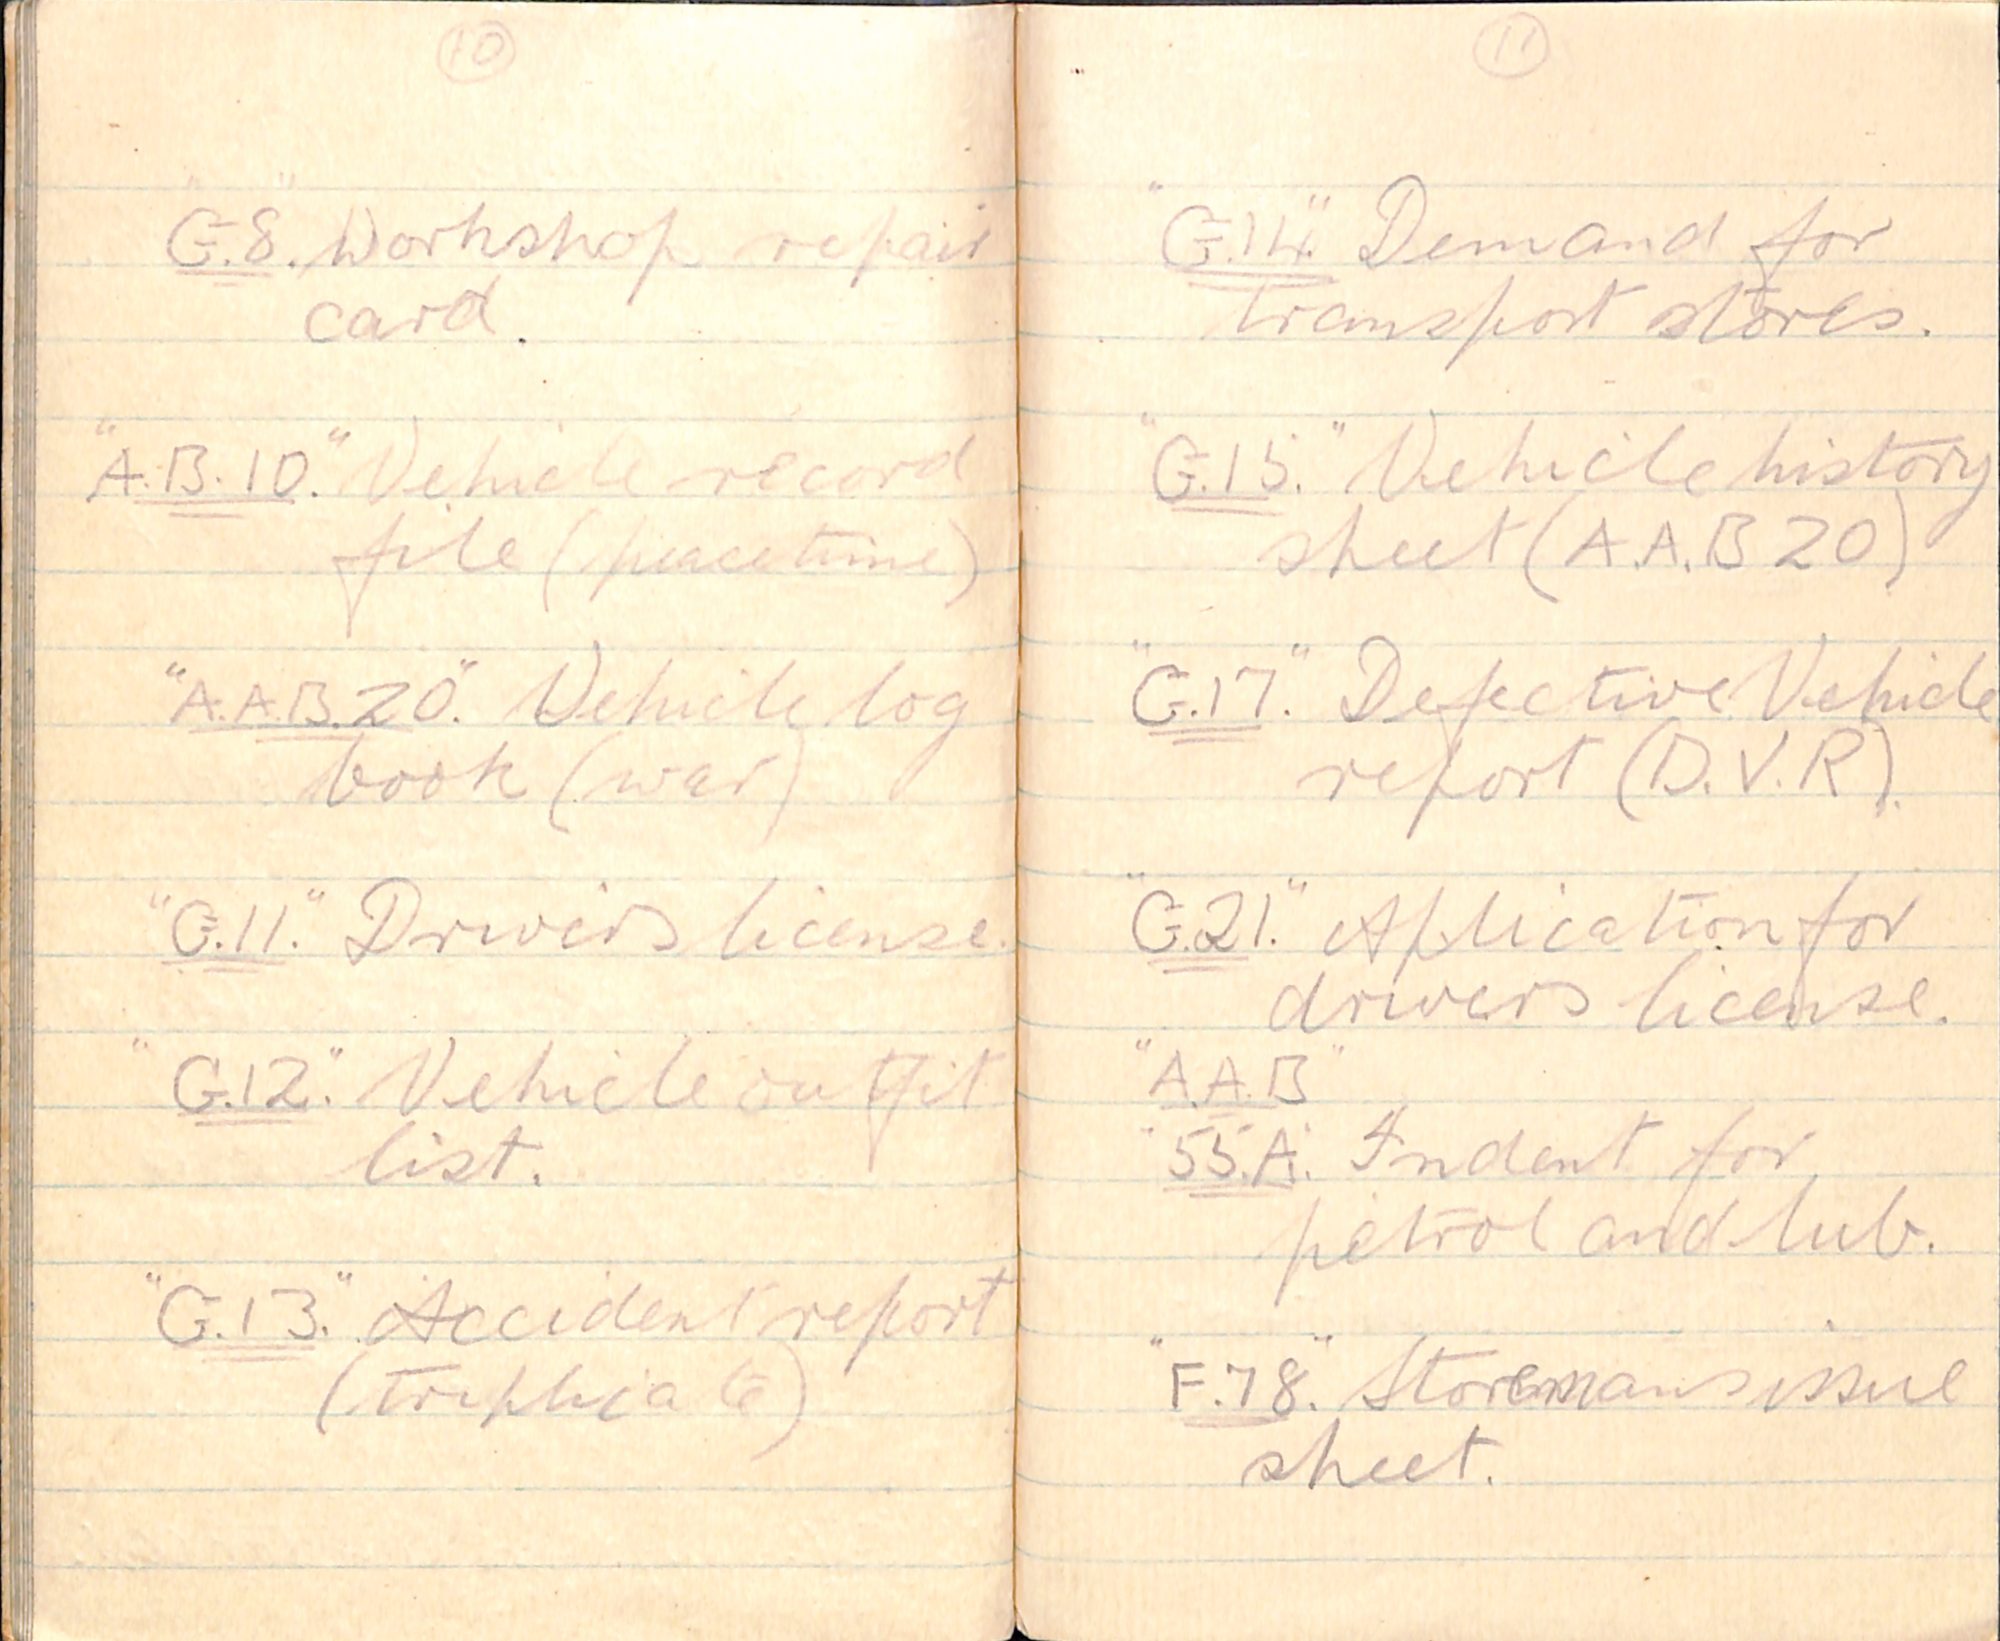 10
"G.8". Workshop repair
card.
"A.B.10." Vehicle record
file (peacetime)
"A.A.B.20". Vehicle log
book (war)
"G.11." Drivers license.
"G.12." Vehicle outfit
list.
"G.13." Accident report
(triplicate)
11
"G.14." Demand for
transport stores.
"G.15." Vehicle history
sheet (A.A.B 20)
"G.17." Defective Vehicle
report (D.V.R).
"G.21." Application for
drivers license.
"A.A.B"
"55.A". Indent for
petrol and lub.
"F.78". Storemans issue
sheet.